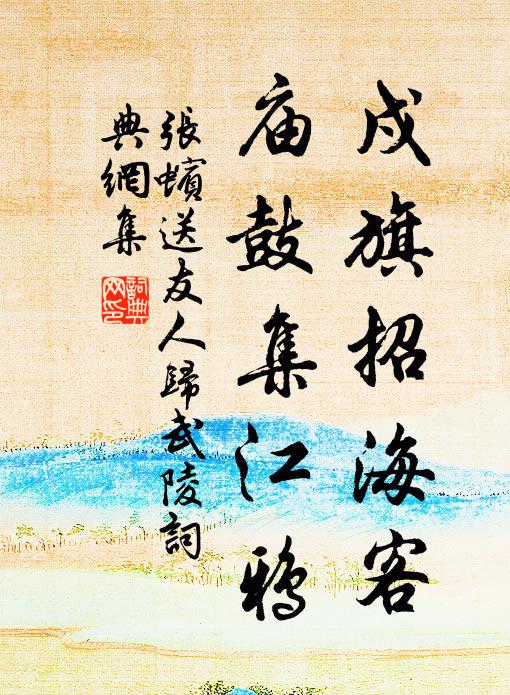 戍旗招海客
庙鼓集江鴉
張蠙送友人歸武陵詞
典網集
詞典
网印